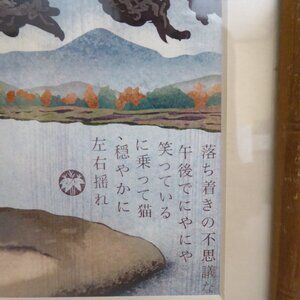 落ち着きの不思議な
午後でにやにや
笑っている
に乗って猫
、穏やかに
左右揺れ